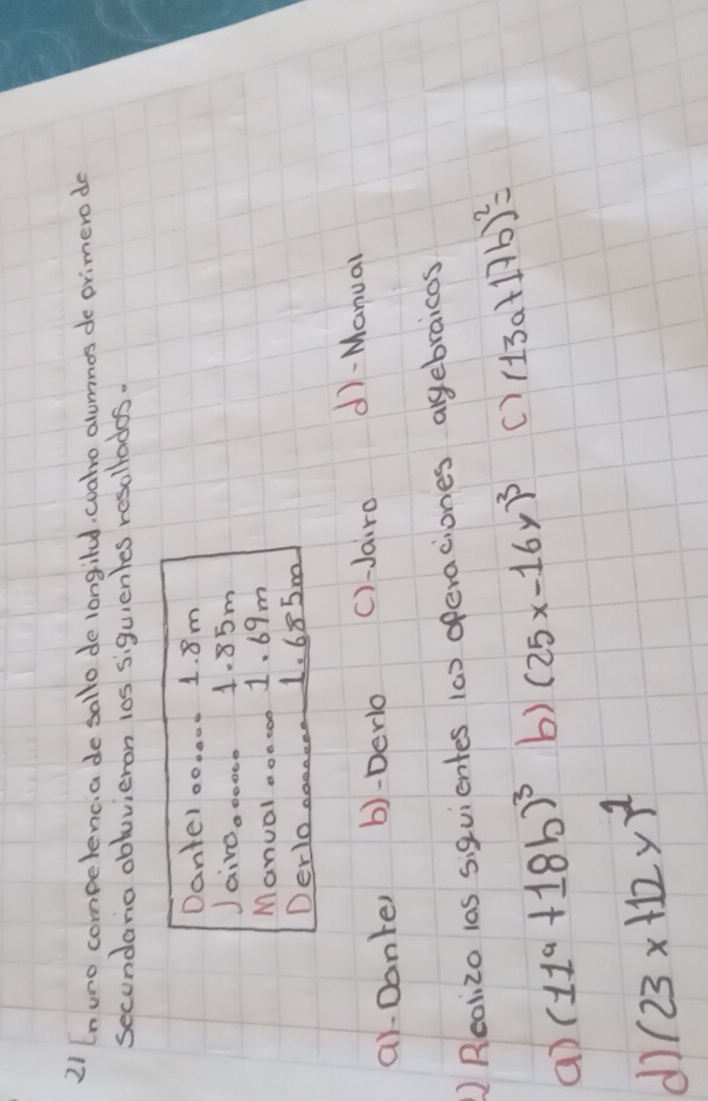 21 En una competencia de salto de longitud. cuatro alumnos de primero de
secundaria obtuvieron los siguientes resultados.
Dantel ...... 1.8m
Jairo...... 1.85m
Manual ...... 1.69m
Derlo ....... 1.685m
a)-Dantel b)-Derlo c)-Jairo d)-Manual
2) Realiza las siguientes las operaciones algebraicas
a) (11a+18b)³ b) (25x-16y)³ c) (13a+17b)²=
d) (23x+12y)²